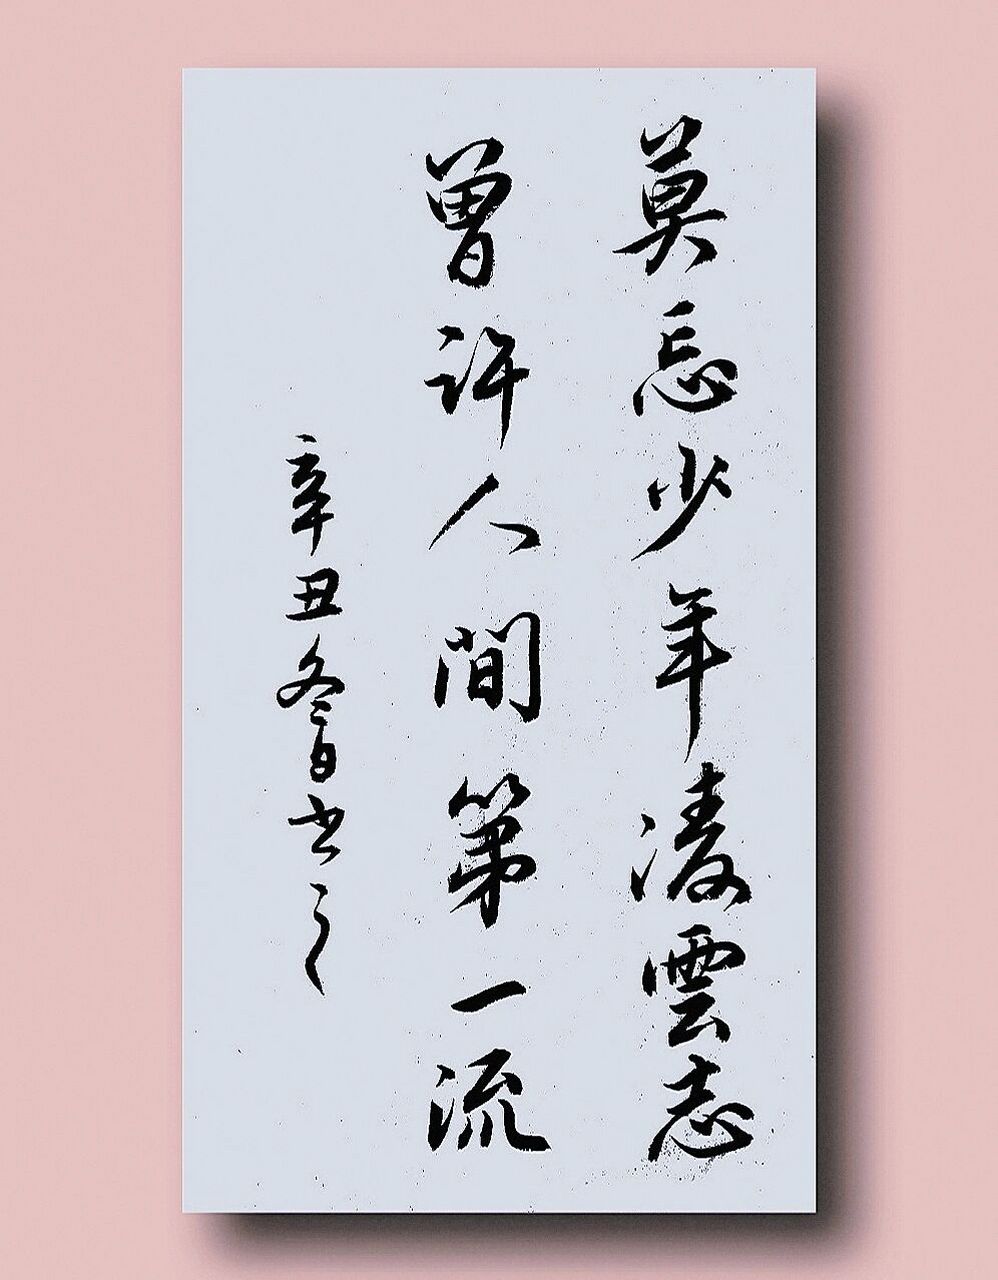 莫忘少年凌雲志
曾许人間第一流
辛丑冬日书之